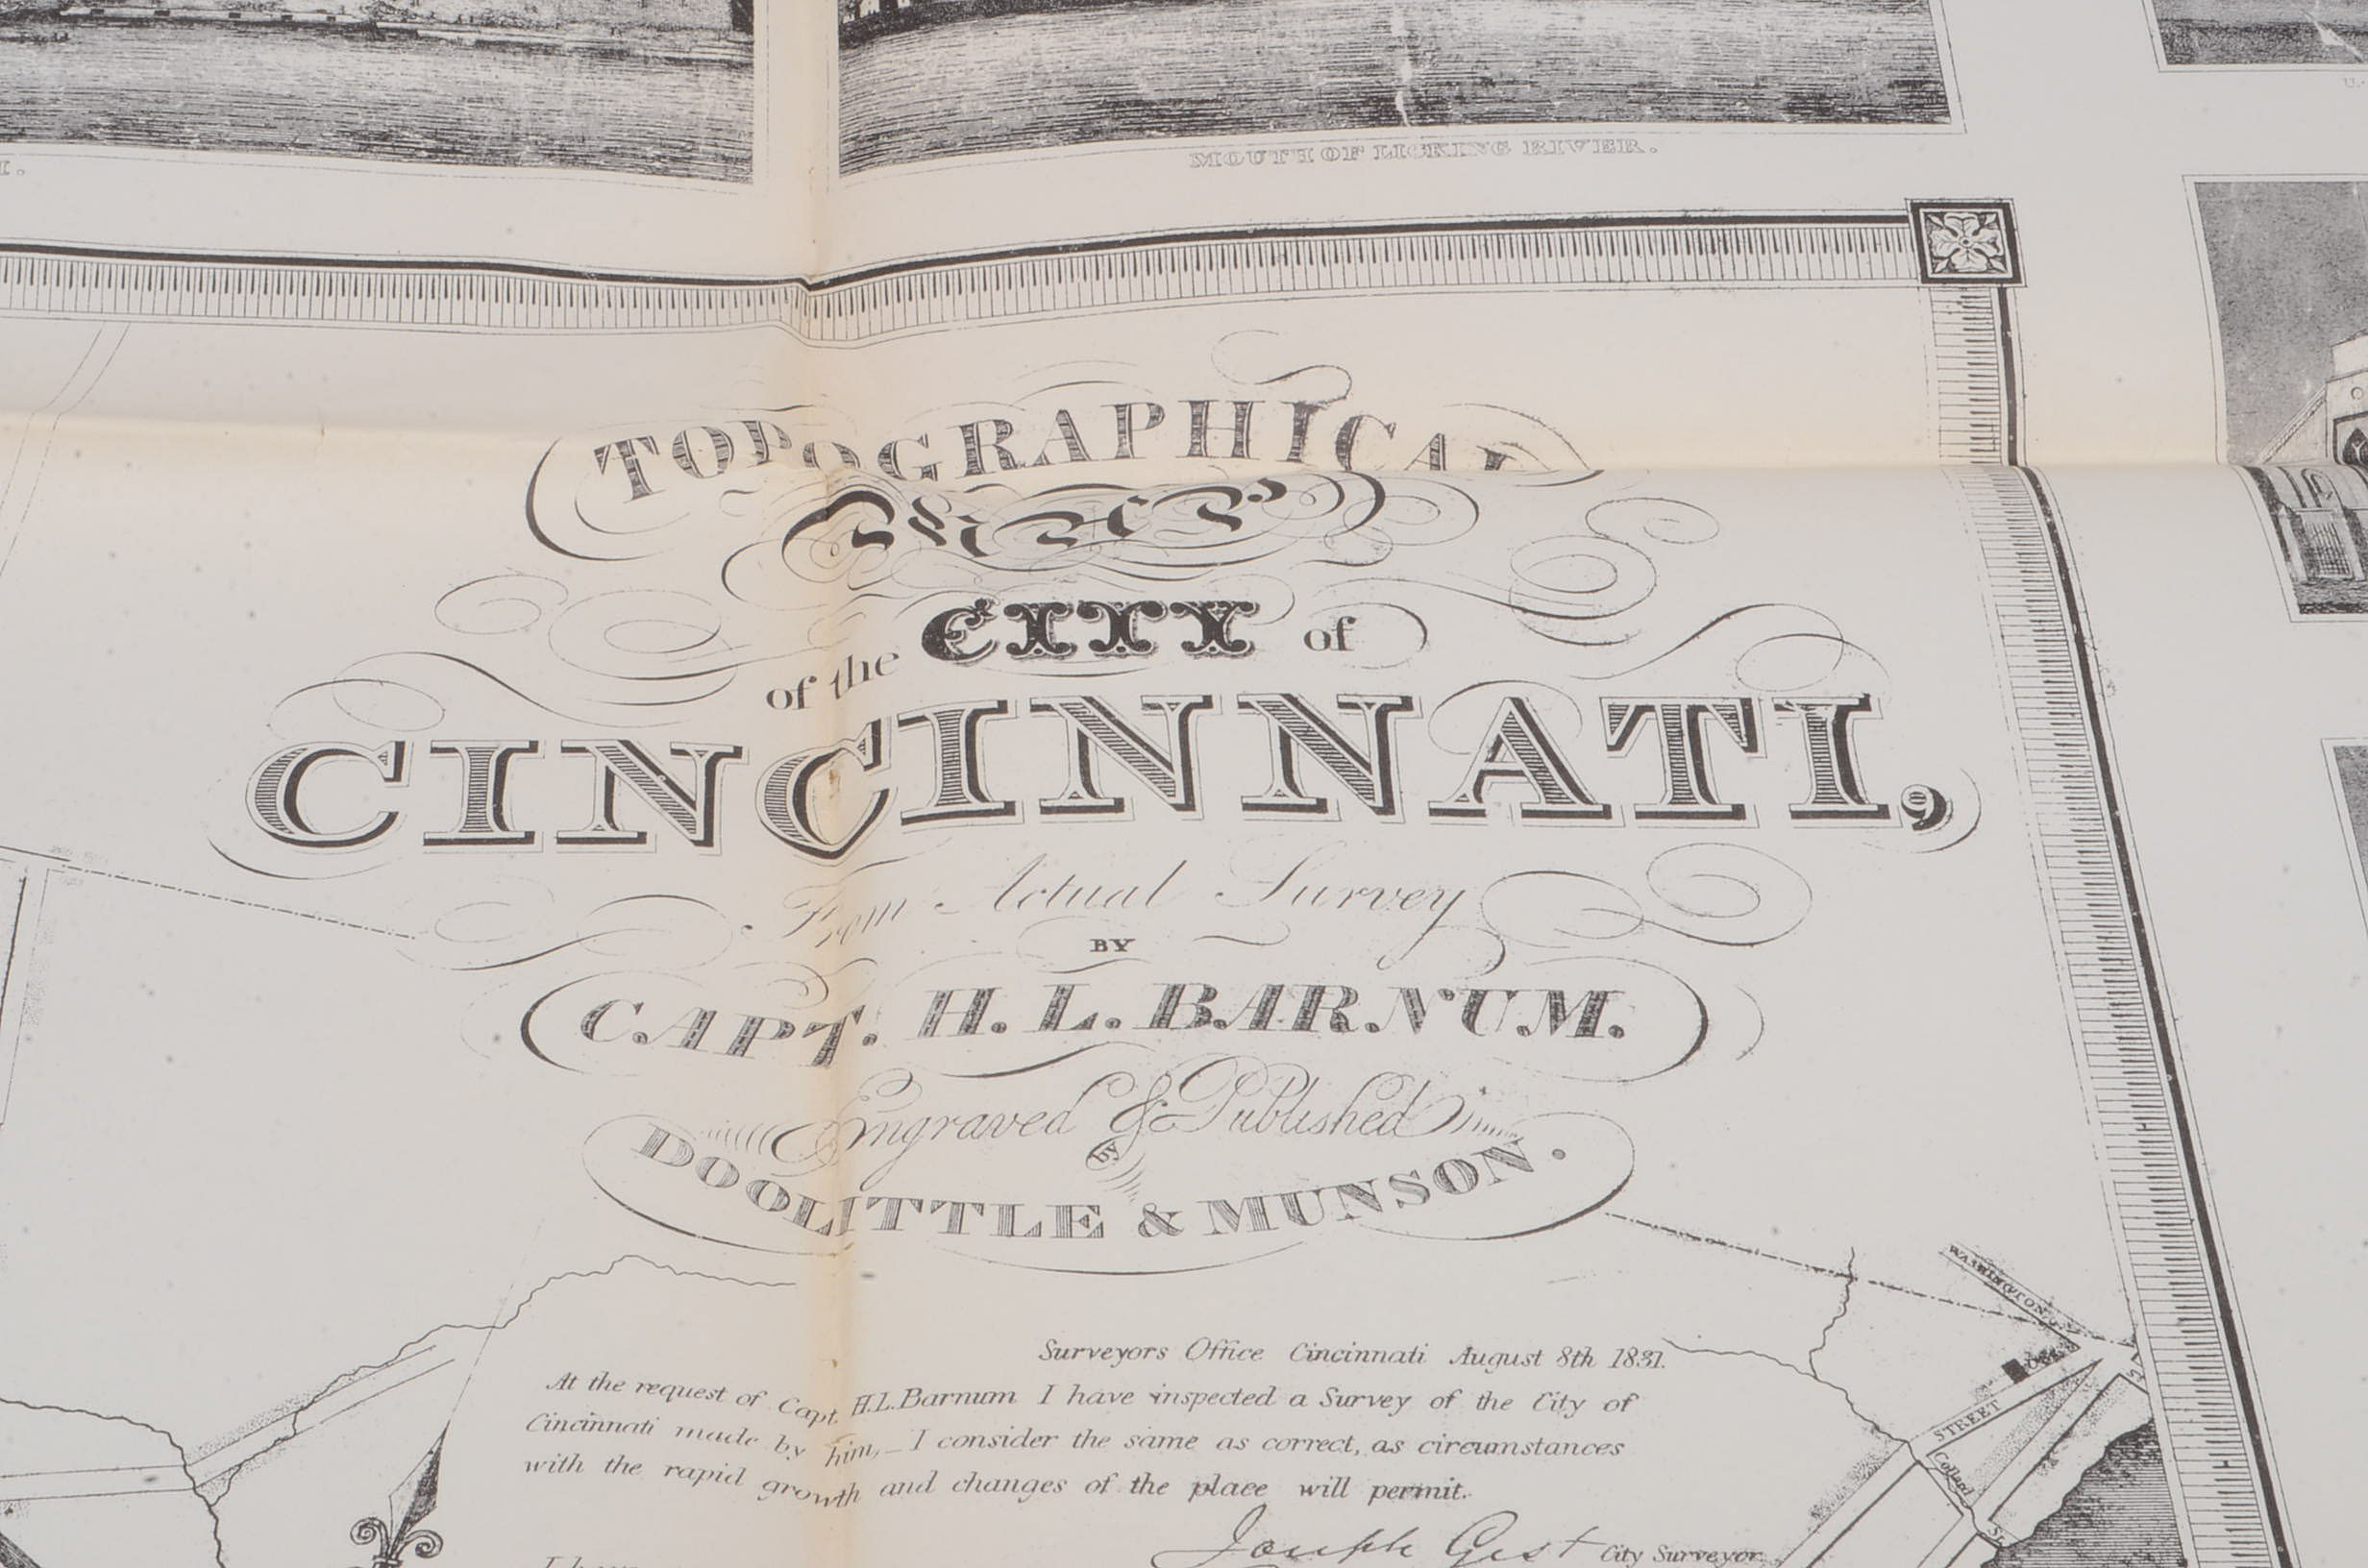 MOUTH OF LICKING RIVER.
TOPOGRAPHICAL
MAP
of the CITY of
CINCINNATI,
From Actual Survey
BY
CAPT. H. L. BARNUM.
Engraved & Published
by
DOOLITTLE & MUNSON.
WASHINGTON
STREET
Surveyors Office Cincinnati August 8th 1831.
At the request of Capt. H.L. Barnum I have inspected a Survey of the City of
Cincinnati made by him,_ I consider the same as correct, as circumstances
with the rapid growth and changes of the place will permit.
Joseph Gest City Surveyor
I have